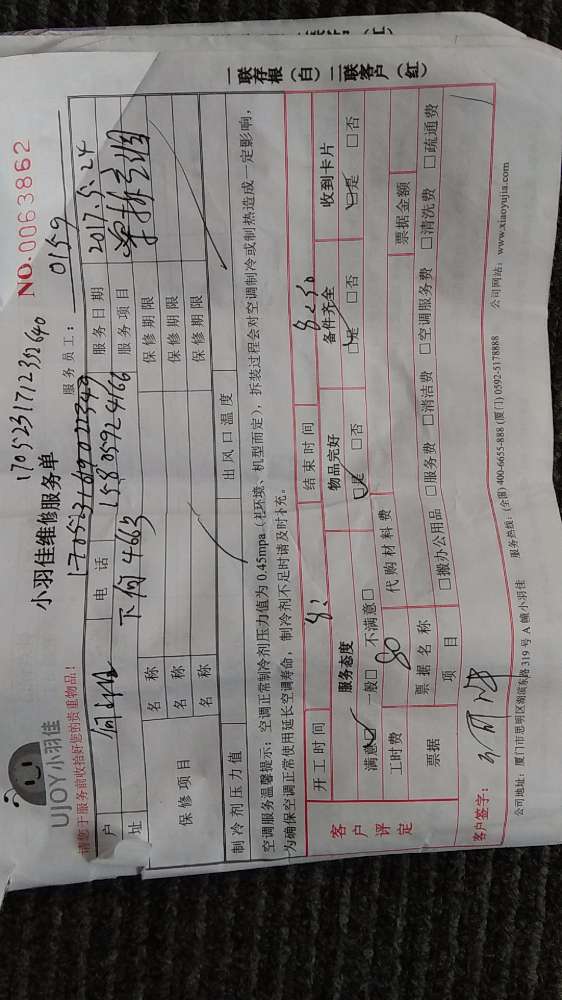 UJOY小羽佳
小羽佳维修服务单
NO.0063862
170523171233640
请您于服务前收拾好您的贵重物品!
服务员工: 0159
户
电话 15805924166
服务日期 2017.5.24
址 下何4663
服务项目
保修项目
名称
保修期限
名称
保修期限
名称
保修期限
制冷剂压力值
出风口温度
空调服务温馨提示:空调正常制冷剂压力值为0.45mpa(视环境、机型而定),拆装过程会对空调制冷或制热造成一定影响,
为确保空调正常使用延长空调寿命,制冷剂不足时请及时补充。
客户评定
开工时间
结束时间
服务态度
物品完好
备件齐全
收到卡片
满意☑ 一般□ 不满意□
☑是 □否
☑是 □否
☑是 □否
工时费 80
代购材料费
票据
票据名称
票据金额
项目
□搬办公用品 □服务费 □消洁费 □空调服务费 □清洗费 □疏通费
客户签字:
公司地址:厦门市思明区湖滨东路319号A幢小羽佳
服务热线:(全国)400-6655-888 (厦门)0592-5178888
公司网站:www.xiaoyujia.com
一联存根(白) 二联客户(红)